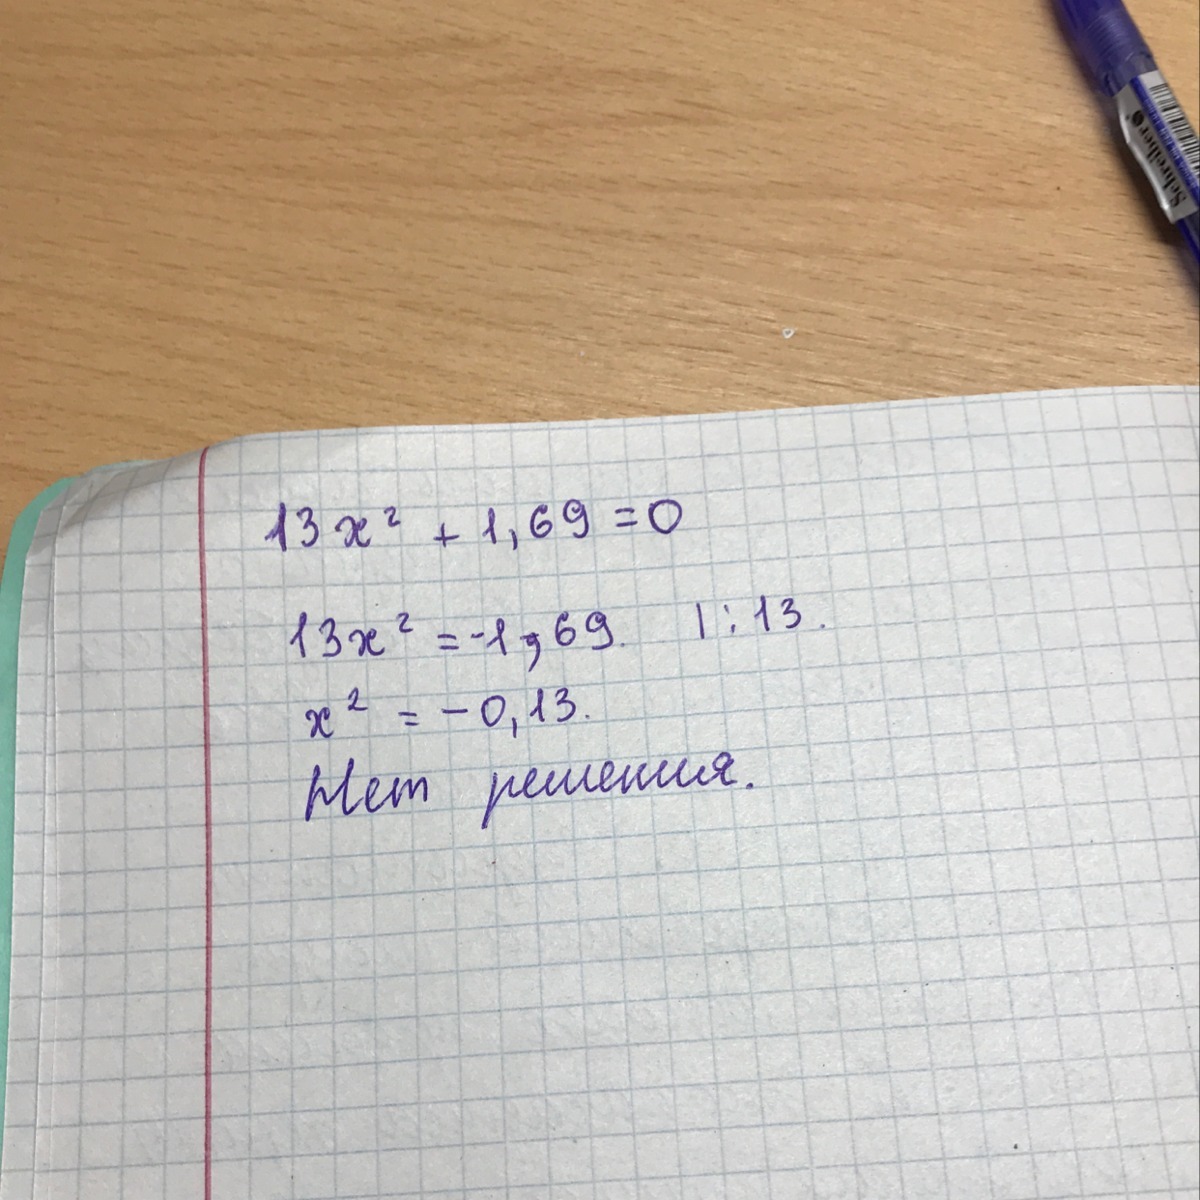 13x² + 1,69 = 0
13x² = -1,69. |:13.
x² = -0,13.
Нет решения.
Schreiber